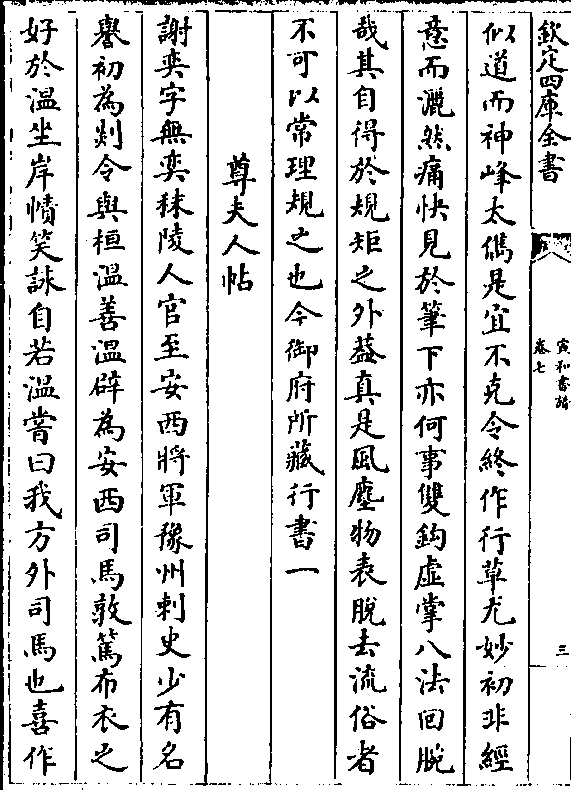 欽定四庫全書
宣和書譜
卷七
三
似道而神峰太儁是宜不克令終作行草尤妙初非經
意而灑然痛快見於筆下亦何事雙鈎虚掌八法回腕
哉其自得於規矩之外蓋真是風塵物表脫去流俗者
不可以常理規之也今御府所藏行書一
尊夫人帖
謝奕字無奕秣陵人官至安西將軍豫州刺史少有名
譽初為剡令與桓溫善溫辟為安西司馬敦篤布衣之
好於溫坐岸幘笑詠自若溫嘗曰我方外司馬也喜作